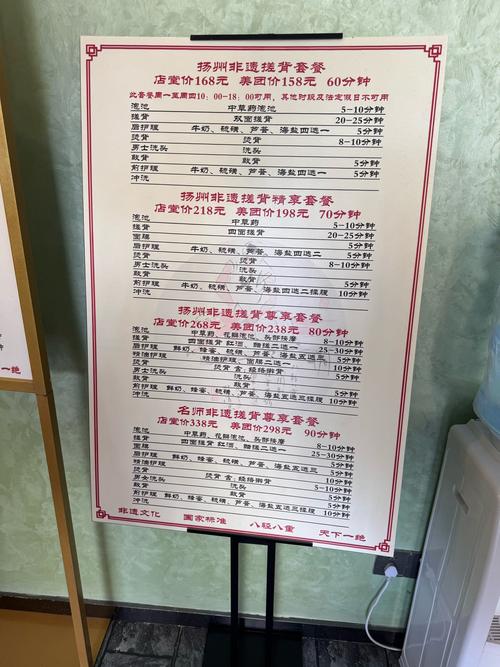 扬州非遗搓背套餐
店堂价168元 美团价158元 60分钟
此套餐周一至周四10：00-18：00可用，其他时段及法定假日不可用
泡池 中草药泡池 5-10分钟
搓背 双面搓背 20-25分钟
后护理 牛奶、硫磺、芦荟、海盐四选一 5分钟
烫背 烫背 8-10分钟
男士洗头 洗头
敲背 敲背 5分钟
前护理 牛奶、硫磺、芦荟、海盐四选一 5分钟
冲洗
扬州非遗搓背精享套餐
店堂价218元 美团价198元 70分钟
泡池 中草药 5-10分钟
搓背 四面搓背 20-25分钟
面膜 5分钟
后护理 牛奶、硫磺、芦荟、海盐四选二 5分钟
烫背 烫背 8-10分钟
男士洗头 洗头 5分钟
敲背 敲背 5分钟
前护理 牛奶、硫磺、芦荟、海盐四选二揉揉 10分钟
冲洗
扬州非遗搓背尊享套餐
店堂价268元 美团价238元 80分钟
泡池 中草药、花瓣泡池、头部按摩 8-10分钟
搓背 四面搓背 红酒、醋搓二选一 25-30分钟
后护理 鲜奶、蜂蜜、硫磺、芦荟、海盐五选三 5分钟
精油护理 精油护理、面膜二选一 5分钟
烫背 烫背 含：经络揪背 10分钟
男士洗头 洗头 5分钟
敲背 敲背 5分钟
前护理 鲜奶、蜂蜜、硫磺、芦荟、海盐五选三揉揉 10分钟
冲洗
名师非遗搓背尊享套餐
店堂价338元 美团价298元 90分钟
泡池 中草药、花瓣泡池、头部按摩 8-10分钟
搓背 四面搓背 红酒、醋搓二选一 25-30分钟
面膜 5分钟
后护理 鲜奶、蜂蜜、硫磺、芦荟、海盐五选三 5分钟
精油护理 5分钟
烫背 烫背 含：经络揪背 10分钟
男士洗头 洗头 5-10分钟
敲背 敲背 5分钟
前护理 鲜奶、蜂蜜、硫磺、芦荟、海盐五选三揉揉 10分钟
冲洗
非遗文化 国家标准 八轻八重 天下一绝
一绝